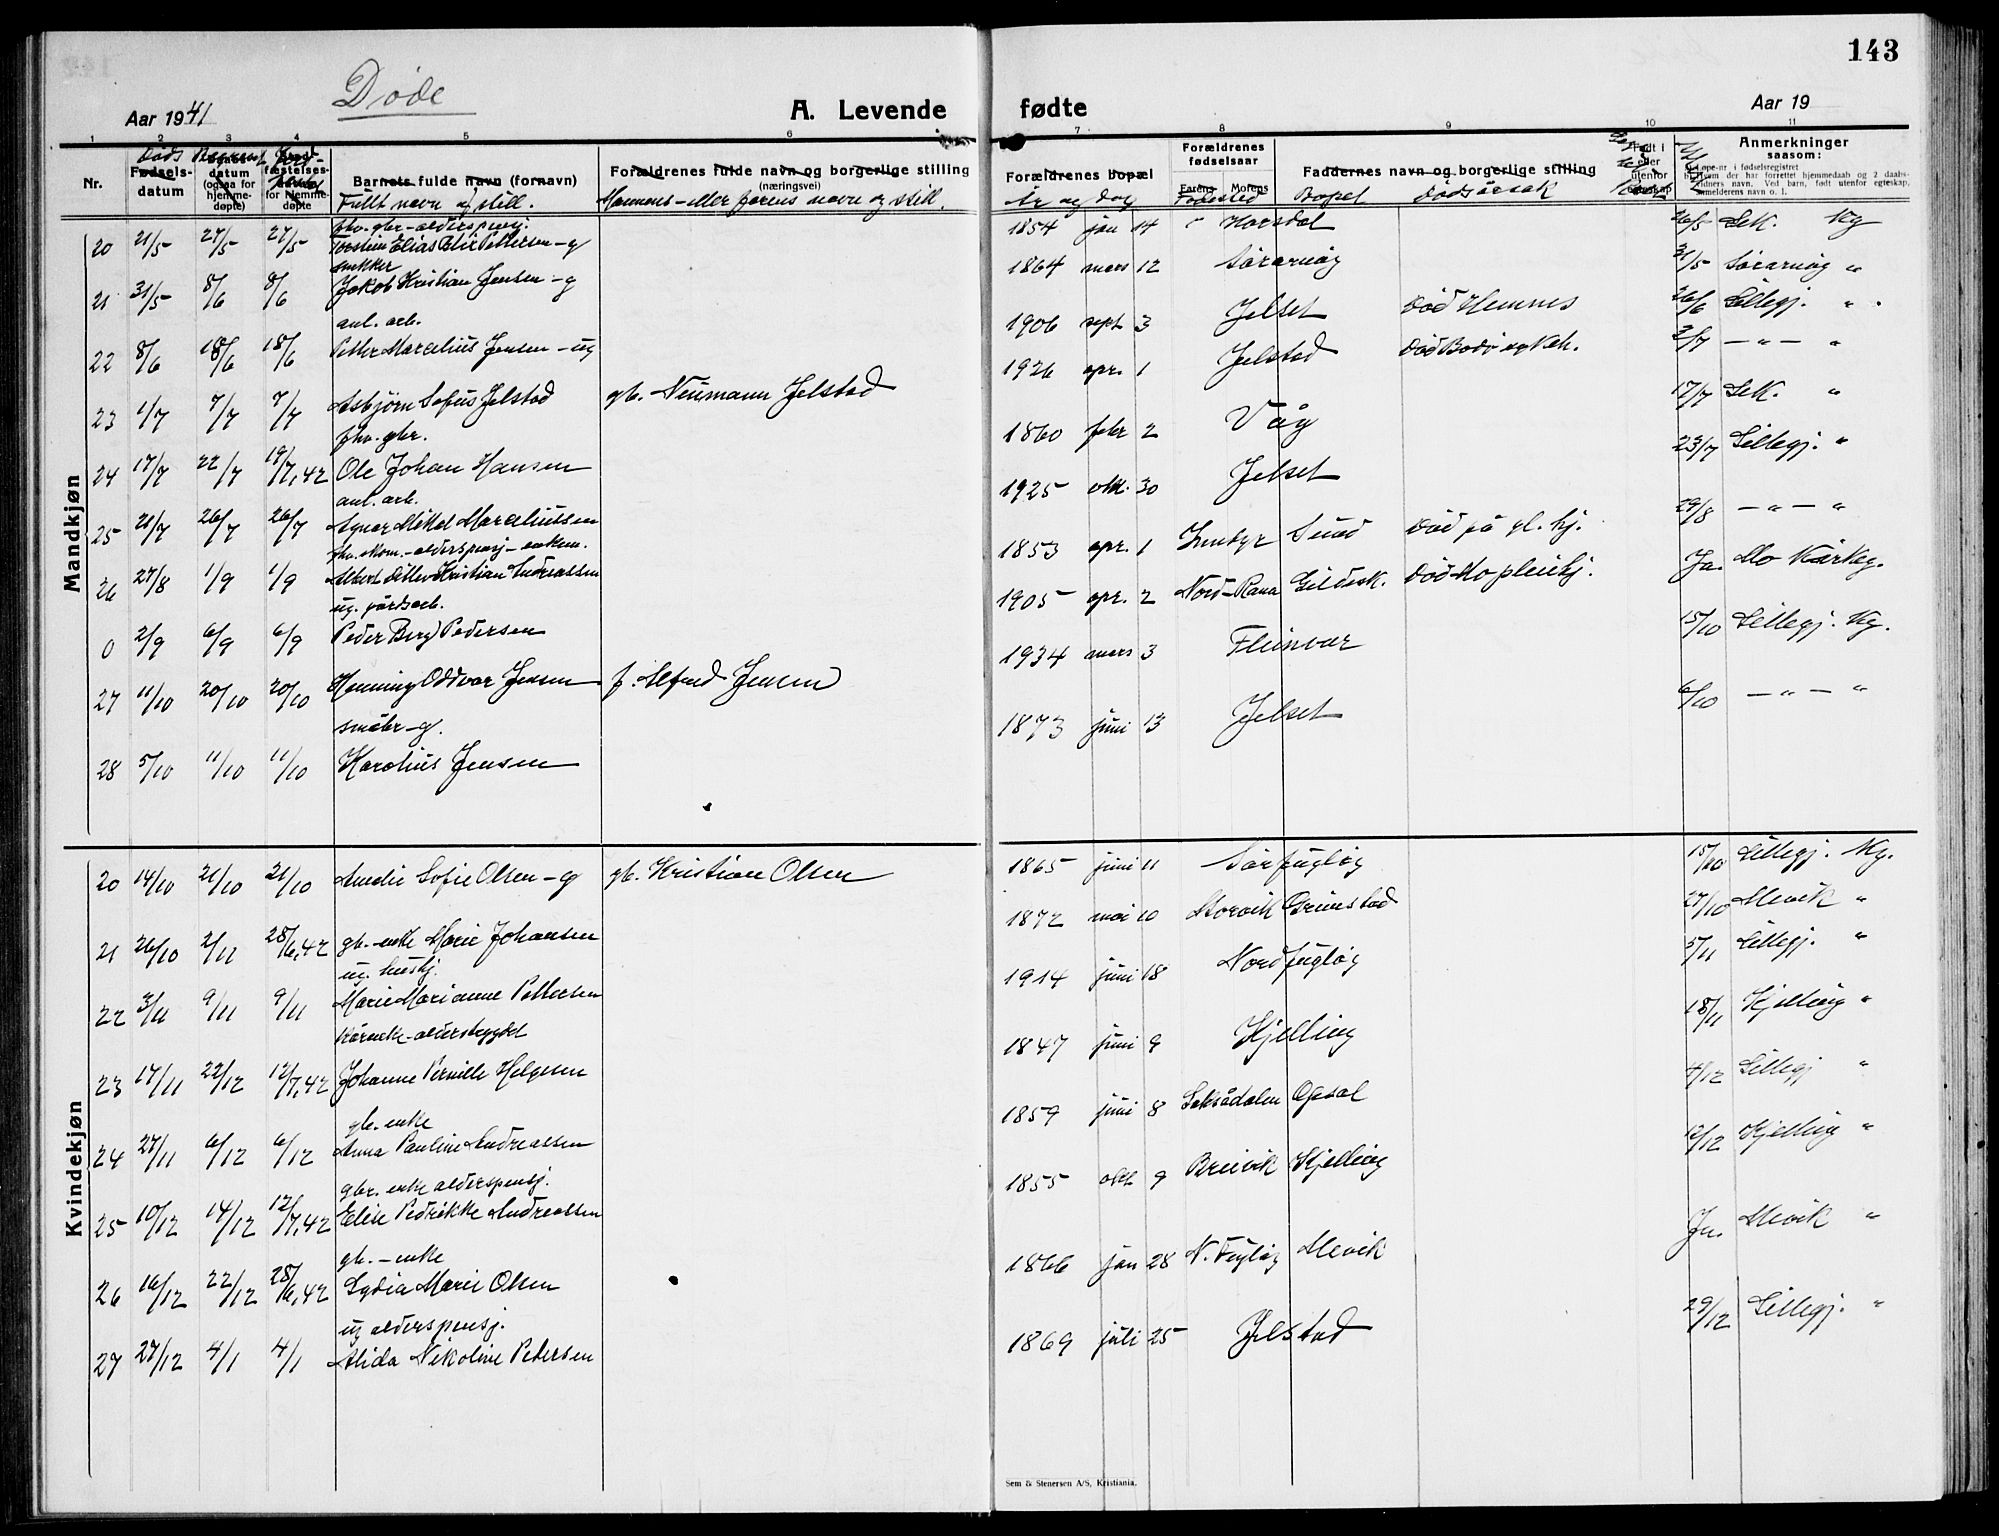 143
Døde
Aar 1941
A. Levende
fødte
Aar 19
1 2 3 4 5 6
7 8 9 10 11
Nr.
Døds
Fødsels-
datum
datum
(ogsaa for
hjemme-
døpte)
for hjemme-
døpte
Barnets fulde navn (fornavn)
Fullt navn og still.
Forældrenes fulde navn og borgerlige stilling
(næringsvei)
Mannens - eller farens navn og still.
Forældrenes bopæl
År og dag
Forældrenes
fødselsaar
Farens Morens
Fødested
Faddernes navn og borgerlige stilling
Bopel Dødsårsak
Født i
eller
utenfor
Anmerkninger
saasom:
Mandkjøn
fhv. gbr - alderspensj.
20 21/5 27/5 27/5 Torstein Elias Pettersen - g
1854 jan 14 Horsdal 26/5 Lek. Kg
snekker
21 31/5 8/6 8/6 Jakob Kristian Jensen - g
1864 mars 12 Sørarnøy 31/5 Sørarnøy "
anl. arb.
22 8/6 18/6 18/6 Petter Marcelius Jensen - ug
1906 sept 3 Jelset død Hemnes 26/6 Lillegj. "
23 1/7 7/7 7/7 Asbjørn Sofus Jelstad gb. Neumann Jelstad
1926 apr. 1 Jelstad død Bodø sykeh. 2/7 — " — "
fhv. gbr.
24 17/7 22/7 19/7,42 Ole Johan Hansen
1860 febr 2 Våg 17/7 Lek. "
anl. arb.
25 21/7 26/7 26/7 Agnar Mikal Marceliussen
1925 okt. 30 Jelset 23/7 Lillegj. "
fhv. skom. - alderspensj - enkem.
26 27/8 1/9 1/9 Albert Ditlev Kristian Andreassen
1853 apr. 1 Inndyr Sund død på gl. hj. 29/8 — " — "
ug. jordsarb.
0 2/9 6/9 6/9 Peder Berg Pedersen
1905 apr. 2 Nord-Rana Gildesk. død Mo pleiehj. Ja. Mo Kirkeg.
27 11/10 20/10 20/10 Henning Oddvar Jensen f. Alfred Jensen
1934 mars 3 Fleinvær 15/10 Lillegj. Kg.
småbr - g.
28 5/10 11/10 11/10 Karolius Jensen
1873 juni 13 Jelset 6/10 — " — "
Kvindekjøn
20 14/10 21/10 21/10 Amalie Sofie Olsen - g gb. Kristian Olsen
1865 juni 11 Sørfugløy 15/10 Lillegj. Kg.
21 26/10 2/11 28/6,42 gb. - enke Marie Johansen
1872 mai 10 Storvik Grimstad 27/10 Mevik "
ug. hushj.
22 3/11 9/11 9/11 Marie Marianne Pettersen
1914 juni 18 Nordfugløy 5/11 Lillegj. "
Kårenke - alderstrygdet
23 17/11 22/12 12/7,42 Johanne Pernille Helgesen
1847 juni 9 Kjelling 18/11 Kjelling "
gb. enke
24 27/11 6/12 6/12 Anna Pauline Andreassen
1859 juni 8 Laksådalen Opsal 4/12 Lillegj "
gbr. enke alderspensj.
25 10/12 14/12 12/7,42 Elise Pedrikke Andreassen
1855 okt 9 Breivik Kjelling 12/12 Kjelling "
gb. - enke
26 16/12 22/12 28/6,42 Lydia Marie Olsen
1866 jan 28 N. Fugløy Mevik Ja. Mevik "
ug alderspensj.
27 27/12 4/1 4/1 Alida Nikoline Petersen
1869 juli 25 Jelstad 29/12 Lillegj. "
Sem & Stenersen A/S, Kristiania.